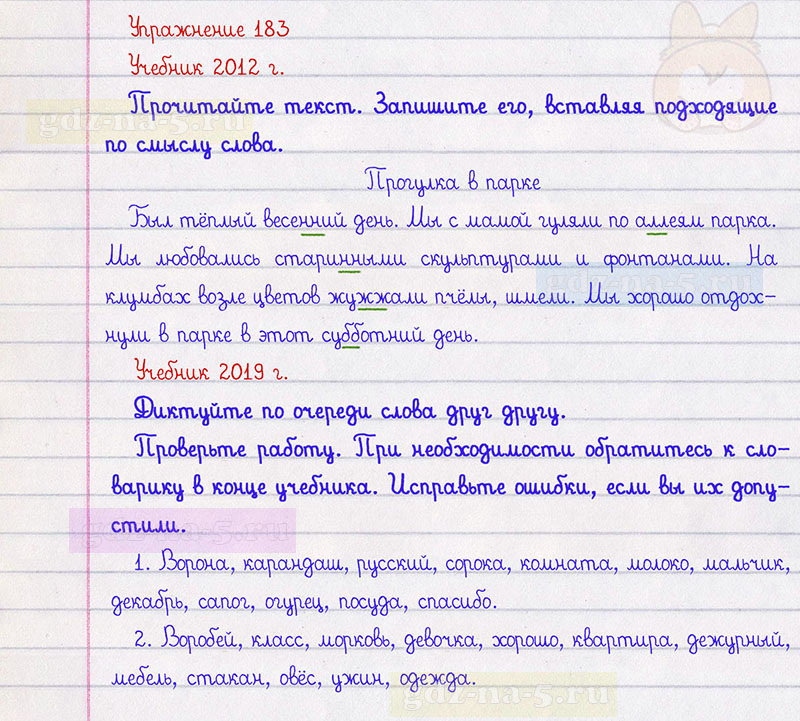 Упражнение 183
Учебник 2012 г.
Прочитайте текст. Запишите его, вставляя подходящие
по смыслу слова.
Прогулка в парке
Был тёплый весенний день. Мы с мамой гуляли по аллеям парка.
Мы любовались старинными скульптурами и фонтанами. На
клумбах возле цветов жужжали пчёлы, шмели. Мы хорошо отдох-
нули в парке в этот субботний день.
Учебник 2019 г.
Диктуйте по очереди слова друг другу.
Проверьте работу. При необходимости обратитесь к сло-
варику в конце учебника. Исправьте ошибки, если вы их допу-
стили.
1. Ворона, карандаш, русский, сорока, комната, молоко, мальчик,
декабрь, сапог, огурец, посуда, спасибо.
2. Воробей, класс, морковь, девочка, хорошо, квартира, дежурный,
мебель, стакан, овёс, ужин, одежда.
gdz-na-5.ru
gdz-na-5.ru
gdz-na-5.ru
gdz-na-5.ru